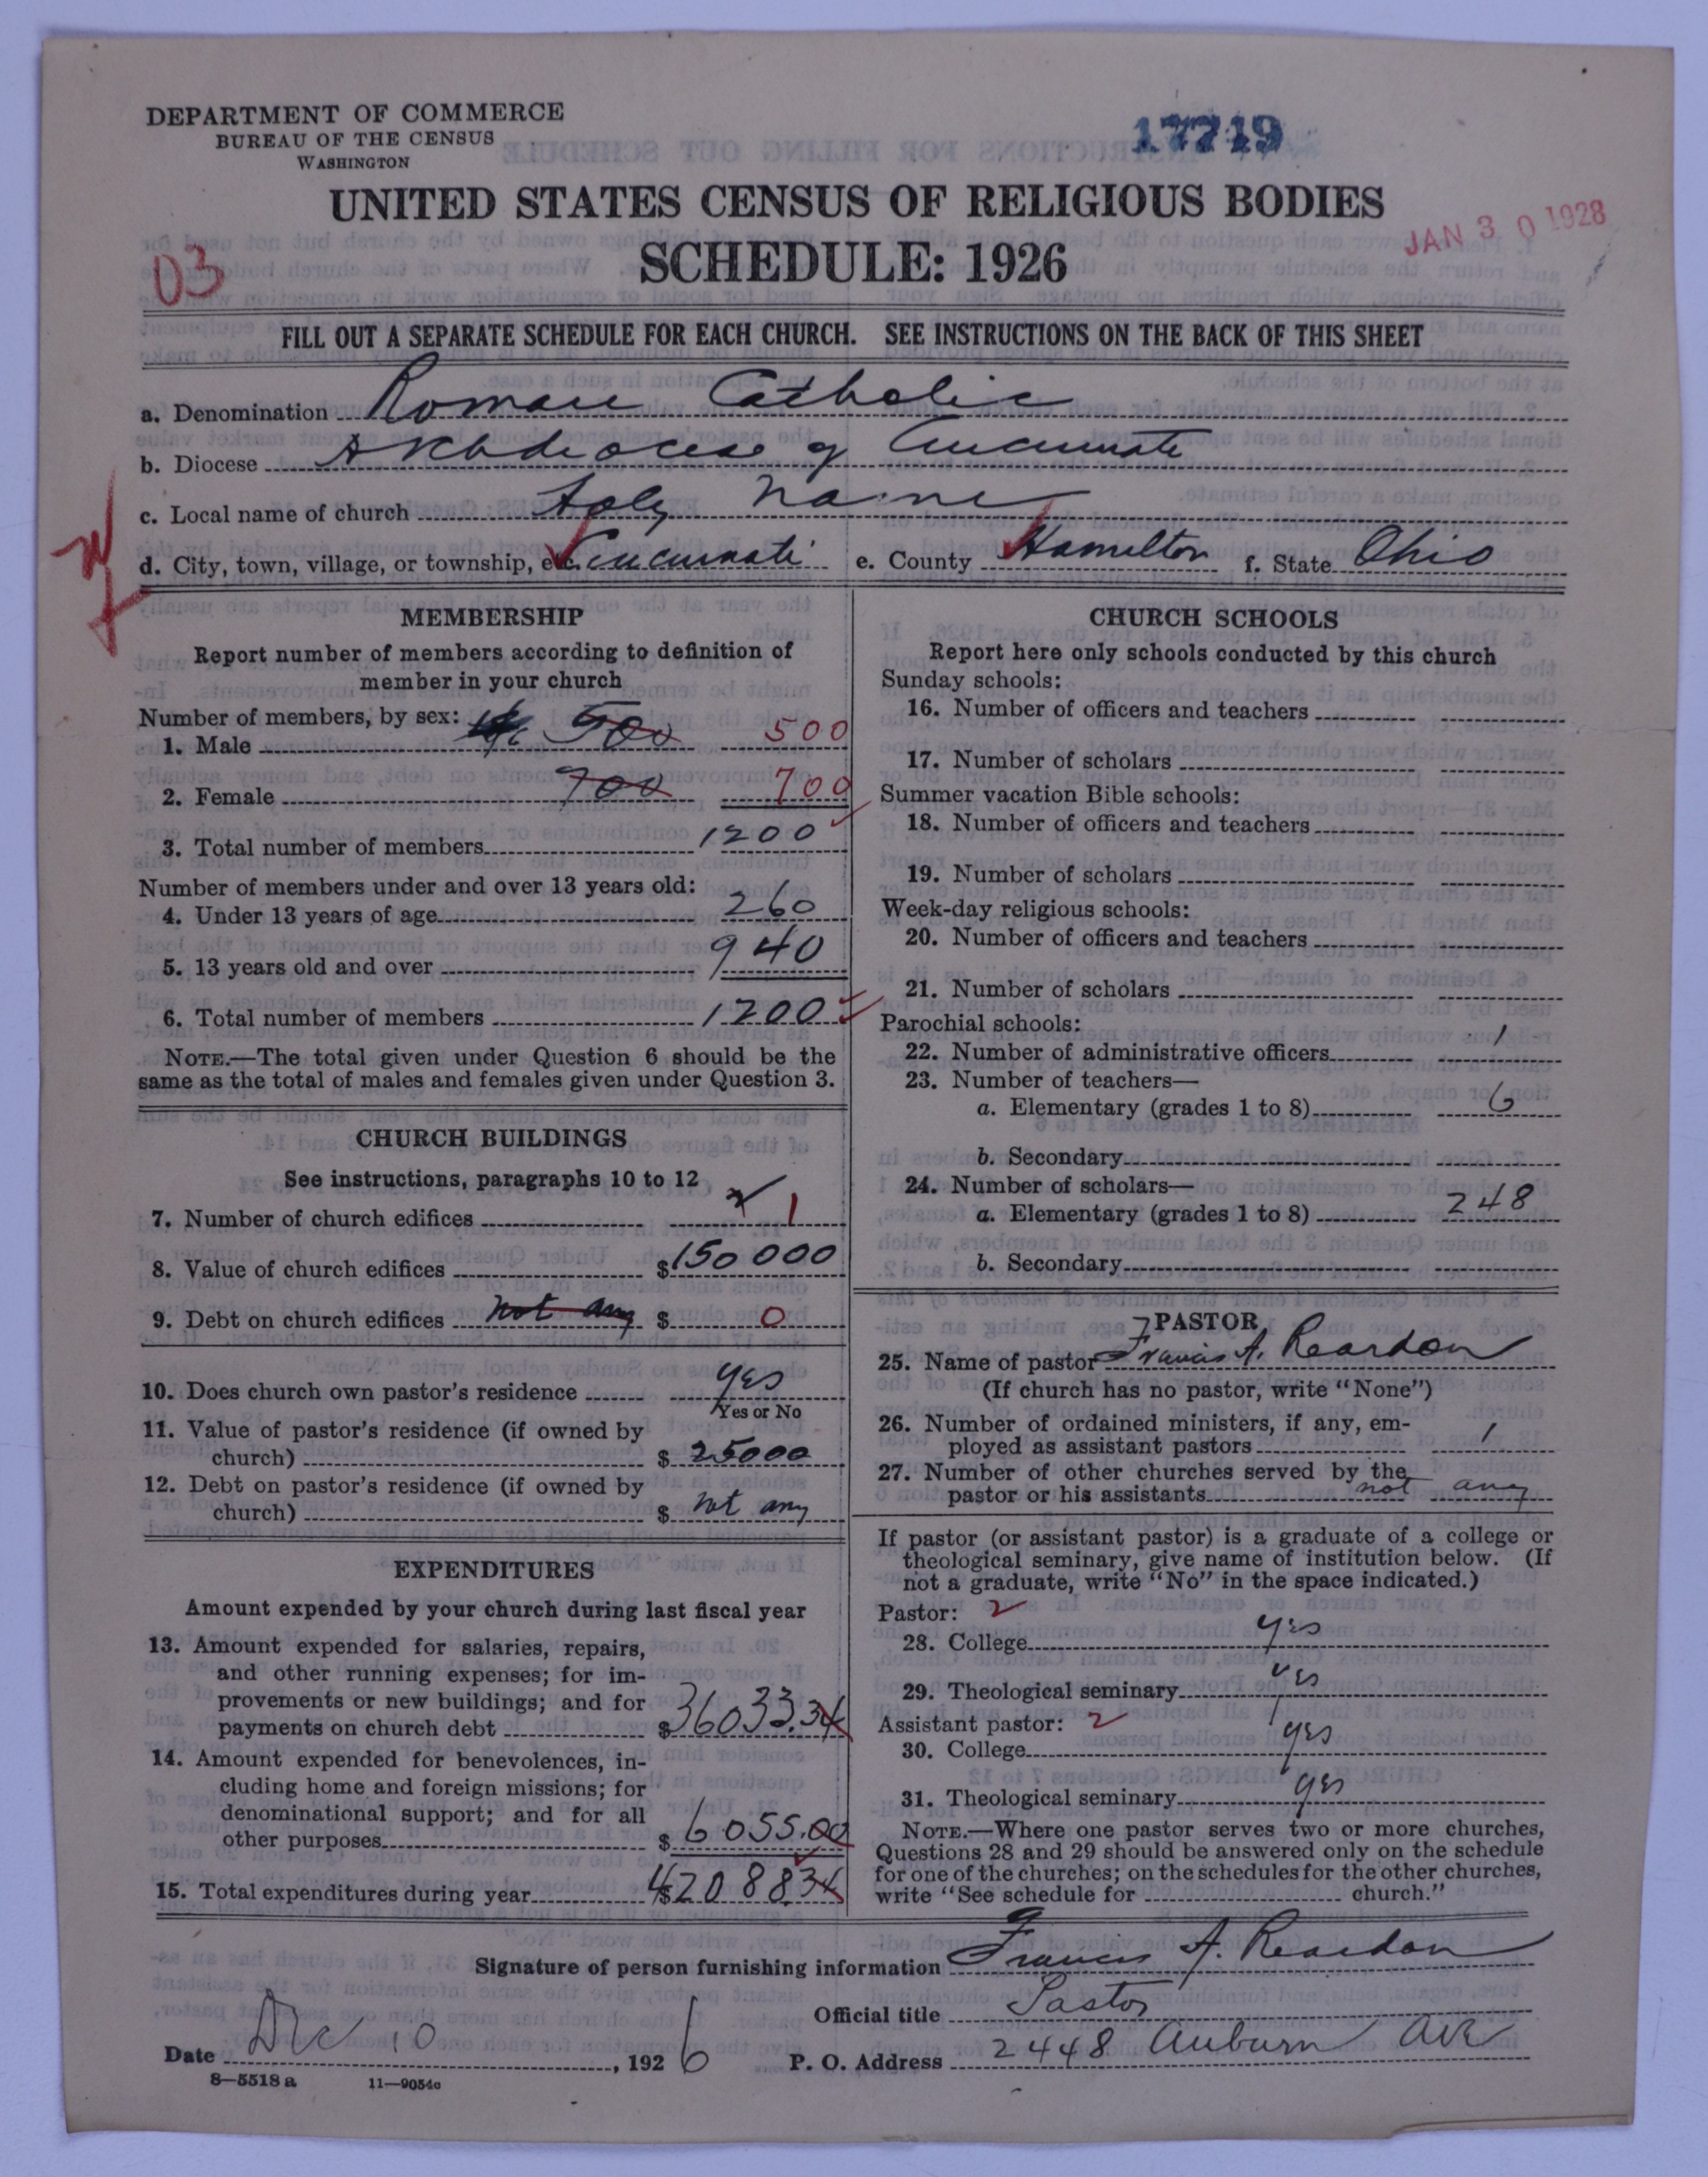 DEPARTMENT OF COMMERCE
BUREAU OF THE CENSUS
WASHINGTON
17719
UNITED STATES CENSUS OF RELIGIOUS BODIES
SCHEDULE: 1926
JAN 30 1928
03
FILL OUT A SEPARATE SCHEDULE FOR EACH CHURCH. SEE INSTRUCTIONS ON THE BACK OF THIS SHEET
a. Denomination Roman Catholic
b. Diocese Archdiocese of Cincinnati
c. Local name of church Holy Name
d. City, town, village, or township, etc. Cincinnati e. County Hamilton f. State Ohio
MEMBERSHIP
Report number of members according to definition of
member in your church
Number of members, by sex:
1. Male 500 500
2. Female 700 700
3. Total number of members 1200
Number of members under and over 13 years old:
4. Under 13 years of age 260
5. 13 years old and over 940
6. Total number of members 1200
NOTE.—The total given under Question 6 should be the
same as the total of males and females given under Question 3.
CHURCH BUILDINGS
See instructions, paragraphs 10 to 12
7. Number of church edifices 1
8. Value of church edifices $150000
9. Debt on church edifices not any $ 0
10. Does church own pastor's residence yes
Yes or No
11. Value of pastor's residence (if owned by
church) $ 25000
12. Debt on pastor's residence (if owned by
church) $ not any
EXPENDITURES
Amount expended by your church during last fiscal year
13. Amount expended for salaries, repairs,
and other running expenses; for im-
provements or new buildings; and for
payments on church debt $36033.34
14. Amount expended for benevolences, in-
cluding home and foreign missions; for
denominational support; and for all
other purposes $ 6055.00
15. Total expenditures during year $42088.34
CHURCH SCHOOLS
Report here only schools conducted by this church
Sunday schools:
16. Number of officers and teachers
17. Number of scholars
Summer vacation Bible schools:
18. Number of officers and teachers
19. Number of scholars
Week-day religious schools:
20. Number of officers and teachers
21. Number of scholars
Parochial schools:
22. Number of administrative officers 1
23. Number of teachers—
a. Elementary (grades 1 to 8) 6
b. Secondary
24. Number of scholars—
a. Elementary (grades 1 to 8) 248
b. Secondary
PASTOR
25. Name of pastor Francis A. Reardon
(If church has no pastor, write "None")
26. Number of ordained ministers, if any, em-
ployed as assistant pastors 1
27. Number of other churches served by the
pastor or his assistants not any
If pastor (or assistant pastor) is a graduate of a college or
theological seminary, give name of institution below. (If
not a graduate, write "No" in the space indicated.)
Pastor: 2
28. College yes
29. Theological seminary yes
Assistant pastor: 2
30. College yes
31. Theological seminary yes
NOTE.—Where one pastor serves two or more churches,
Questions 28 and 29 should be answered only on the schedule
for one of the churches; on the schedules for the other churches,
write "See schedule for church."
Signature of person furnishing information Francis A. Reardon
Official title Pastor
Date Dec 10, 1926 P. O. Address 2448 Auburn Ave
8—5518 a 11—9054c